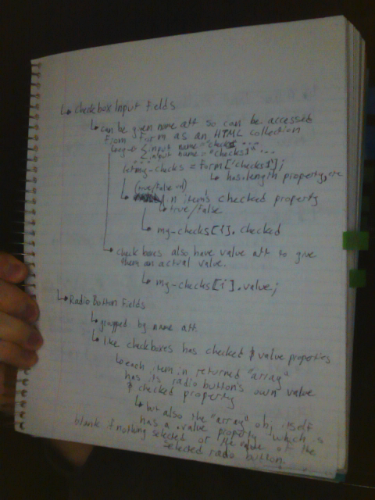 ↳ Checkbox Input Fields
↳ can be given name att so can be accessed
from form as an HTML collection
<input name="checks" ...
<input name="checks" ...
let my-checks = form['checks'];
↳ has length property, etc
(true/false id)
↳ in items checked property
↳ true/false
↳ my-checks[i].checked
↳ checkboxes also have value att to give
them an actual value.
↳ my-checks[i].value;
↳ Radio Button Fields
↳ grouped by name att
↳ like checkboxes has checked & value properties
↳ each item in returned "array"
has its radio button's own value
& checked property
↳ but also the "array" obj itself
has a .value property which is
blank if nothing selected or the value of the
selected radio button.